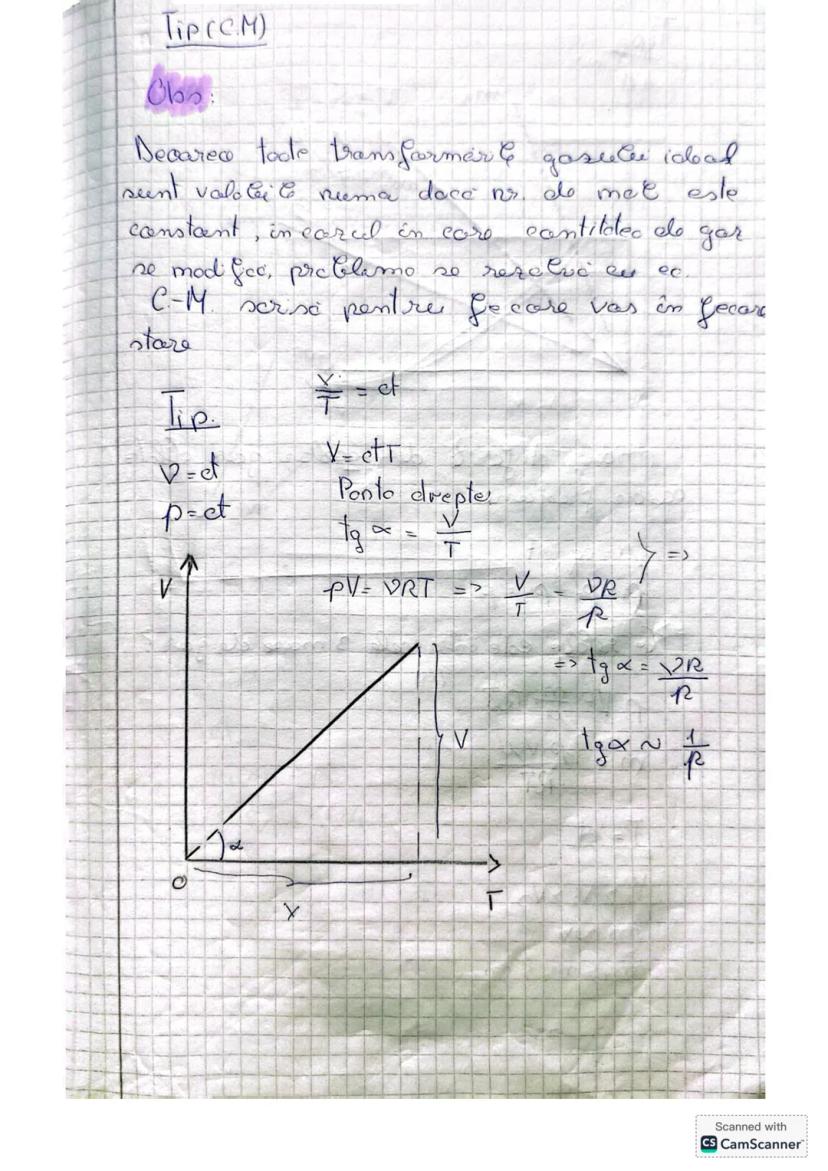 Tip (C.M)
Obs:
Deoarece toate transformările gazului ideal
sunt valabile numa dacă nr. de mol este
constant, in cazul in care cantitatea de gaz
se modifcă, problema se rezolvă cu ec.
C-M. scrisă pentru fecare vas în fecare
stare
Tip.
ν=ct
p=ct
V/T = ct
V=ctT
Panta dreptei
tg α = V/T
pV= νRT => V/T = νR/p } =>
=> tg α = νR/p
tg α ~ 1/p
V
V
α
O
T